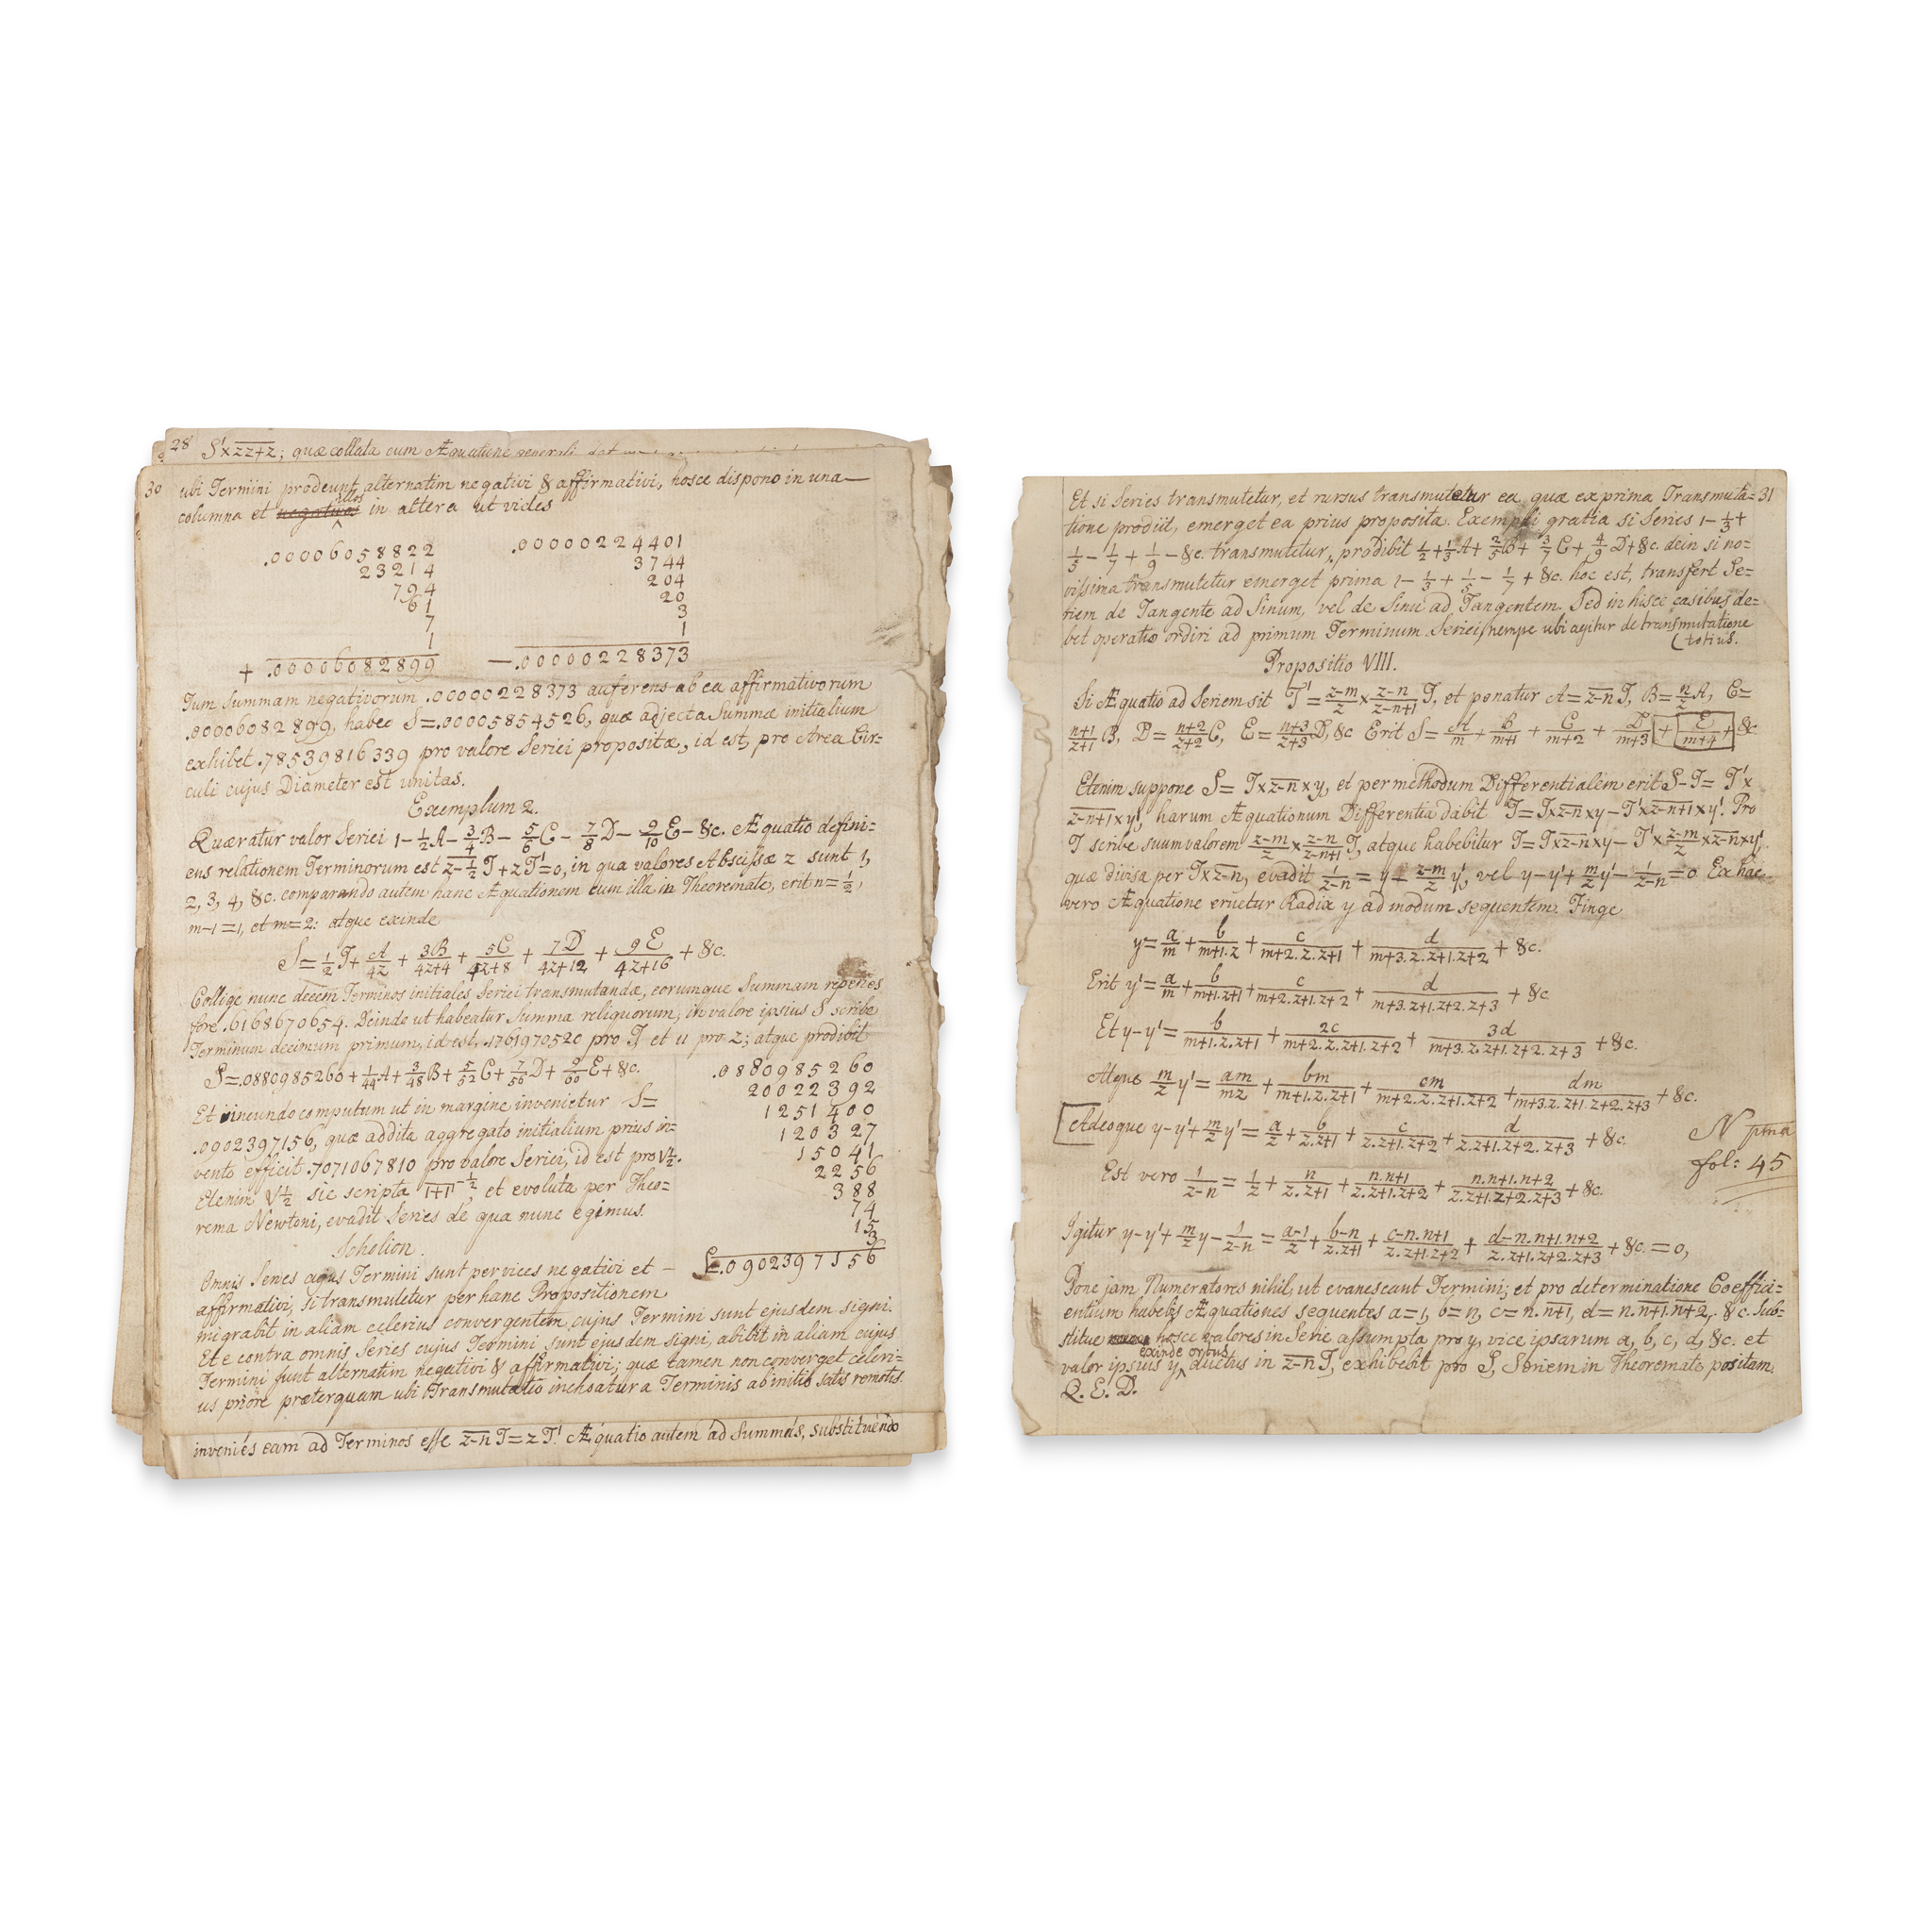 28 S'×zz+z; quæ collata cum Æquatione generali
30 ubi Termini prodeunt alternatim negativi & affirmativi, hosce dispono in una
columna et illos in altera ut vides
.00006058822 .00000224401
23214 3744
794 204
61 20
7 3
1 1
+ .00006082899 —.00000228373
Tum Summam negativorum .00000228373 auferens ab ea affirmativorum
.00006082899, habeo S=.00005854526, quæ adjecta Summæ initialium
exhibet .78539816339 pro valore Seriei propositæ, id est, pro Area Cir=
culi cujus Diameter est unitas.
Exemplum 2.
Quæratur valor Seriei 1−1/2A−3/4B−5/6C−7/8D−9/10E−&c. Æquatio defini=
ens relationem Terminorum est z−1/2 T+zT'=0, in qua valores Abscissæ z sunt 1,
2, 3, 4, &c. comparando autem hanc Æquationem cum illa in Theoremate, erit n=1/2,
m−1=1, et m=2: atque exinde
S=1/2T+A/4z+3B/4z+4+5C/4z+8+7D/4z+12+9E/4z+16+&c.
Collige nunc decem Terminos initiales Seriei transmutandæ, eorumque Summam reperies
fore .6168670654. Deinde ut habeatur Summa reliquorum, in valore ipsius S scribe
Terminum decimum primum, id est, .1761970520 pro T et 11 pro z; atque prodibit
S=.0880985260+1/44A+3/48B+5/52C+7/56D+9/60E+&c.
Et ineundo computum ut in margine invenietur S=
.0902397156, quæ addita aggregato initialium prius in=
vento efficit .7071067810 pro valore Seriei, id est pro √1/2.
Etenim √1/2 sic scripta 1+1^−1/2, et evoluta per Theo=
rema Newtoni, evadit Series de qua nunc egimus.
.0880985260
20022392
1251400
120327
15041
2256
388
74
15
3
S=.0902397156
Scholion.
Omnis Series cujus Termini sunt per vices negativi et —
affirmativi, si transmutetur per hanc Propositionem
migrabit in aliam celerius convergentem cujus Termini sunt ejusdem signi.
Et e contra omnis Series cujus Termini sunt ejusdem signi, abibit in aliam cujus
Termini sunt alternatim negativi & affirmativi; quæ tamen non converget celeri=
us priore præterquam ubi Transmutatio inchoatur a Terminis ab initio satis remotis.
invenies eam ad Terminos esse z−n T=zT'. Æquatio autem ad Summas, substituendo
Et si Series transmutetur, et rursus transmutetur ea quæ ex prima Transmuta= 31
tione prodiit, emerget ea prius proposita. Exempli gratia si Series 1−1/3+
1/5−1/7+1/9−&c. transmutetur, prodibit 1/2+1/3A+2/5B+3/7C+4/9D+&c. dein si no=
vissima transmutetur emerget prima 1−1/3+1/5−1/7+&c. hoc est, transfert Se=
riem de Tangente ad Sinum, vel de Sinu ad Tangentem. Sed in hisce casibus de=
bet operatio ordiri ad primum Terminum Seriei, nempe ubi agitur de transmutatione
(totius.
Propositio VIII.
Si Æquatio ad Seriem sit T'=z−m/z×z−n/z−n+1 T, et ponatur A=z−n T, B=n/z A, C=
n+1/z+1 B, D=n+2/z+2 C, E=n+3/z+3 D, &c Erit S=A/m+B/m+1+C/m+2+D/m+3+E/m+4+&c
Etenim suppone S=T×z−n×y, et per methodum Differentialem erit S−T=T'×
z−n+1×y', harum Æquationum Differentia dabit T=T×z−n×y−T'×z−n+1×y'. Pro
T' scribe suum valorem z−m/z×z−n/z−n+1 T, atque habebitur T=T×z−n×y−T×z−m/z×z−n×y',
quæ divisa per T×z−n, evadit 1/z−n=y+z−m/z y', vel y−y'+m/z y'−1/z−n=0. Ex hac
vero Æquatione eruetur Radix y ad modum sequentem. Finge
y=a/m+b/m+1.z+c/m+2.z.z+1+d/m+3.z.z+1.z+2+&c.
Erit y'=a/m+b/m+1.z+1+c/m+2.z+1.z+2+d/m+3.z+1.z+2.z+3+&c
Et y−y'=b/m+1.z.z+1+2c/m+2.z.z+1.z+2+3d/m+3.z.z+1.z+2.z+3+&c.
Atque m/z y'=am/mz+bm/m+1.z.z+1+cm/m+2.z.z+1.z+2+dm/m+3.z.z+1.z+2.z+3+&c.
Adeoque y−y'+m/z y'=a/z+b/z.z+1+c/z.z+1.z+2+d/z.z+1.z+2.z+3+&c. N pma
fol: 45
Est vero 1/z−n=1/z+n/z.z+1+n.n+1/z.z+1.z+2+n.n+1.n+2/z.z+1.z+2.z+3+&c.
Igitur y−y'+m/z y−1/z−n=a−1/z+b−n/z.z+1+c−n.n+1/z.z+1.z+2+d−n.n+1.n+2/z.z+1.z+2.z+3+&c.=0,
Pone jam Numeratores nihil, ut evanescant Termini; et pro determinatione Coeffici=
entium habebis Æquationes sequentes a=1, b=n, c=n.n+1, d=n.n+1.n+2, &c. Sub=
stitue hosce valores in Serie assumpta pro y, vice ipsarum a, b, c, d, &c. et
valor ipsius y exinde ortus ductus in z−n T, exhibebit pro S, Seriem in Theoremate positam.
Q. E. D.